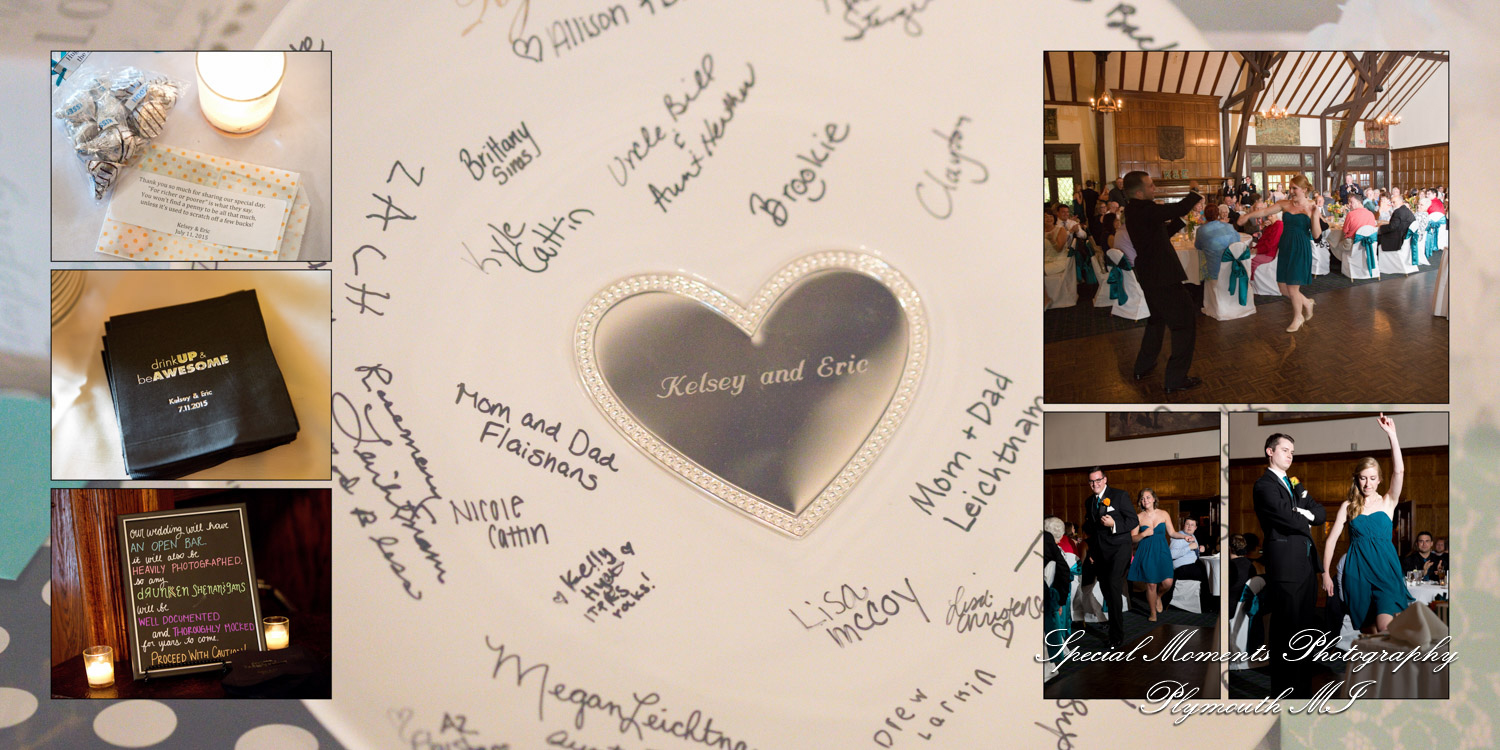 Thank you so much for sharing our special day.
"For richer or poorer" is what they say.
You won't find a penny to be all that much,
unless it's used to scratch off a few bucks!
Kelsey & Eric
July 11, 2015
drinkUP &
beAWESOME
Kelsey & Eric
7.11.2015
our wedding will have
AN OPEN BAR.
it will also be
HEAVILY PHOTOGRAPHED.
so any
drunken shenanigans
will be
WELL DOCUMENTED
and THOROUGHLY MOCKED
for years to come.
PROCEED WITH CAUTION!
Allison +
Brittany
Sims
Uncle Bill
&
Aunt Heather
Brookie
Clayton
ZACH
Kyle
Cattin
Kelsey and Eric
Rosemary
Mom and Dad
Flaishans
Mom + Dad
Leichtnam
Nicole
Cattin
Kelly
Lisa
McCoy
Lisa
Megan Leichtna
Drew
Larkin
AZ
Special Moments Photography
Plymouth MI